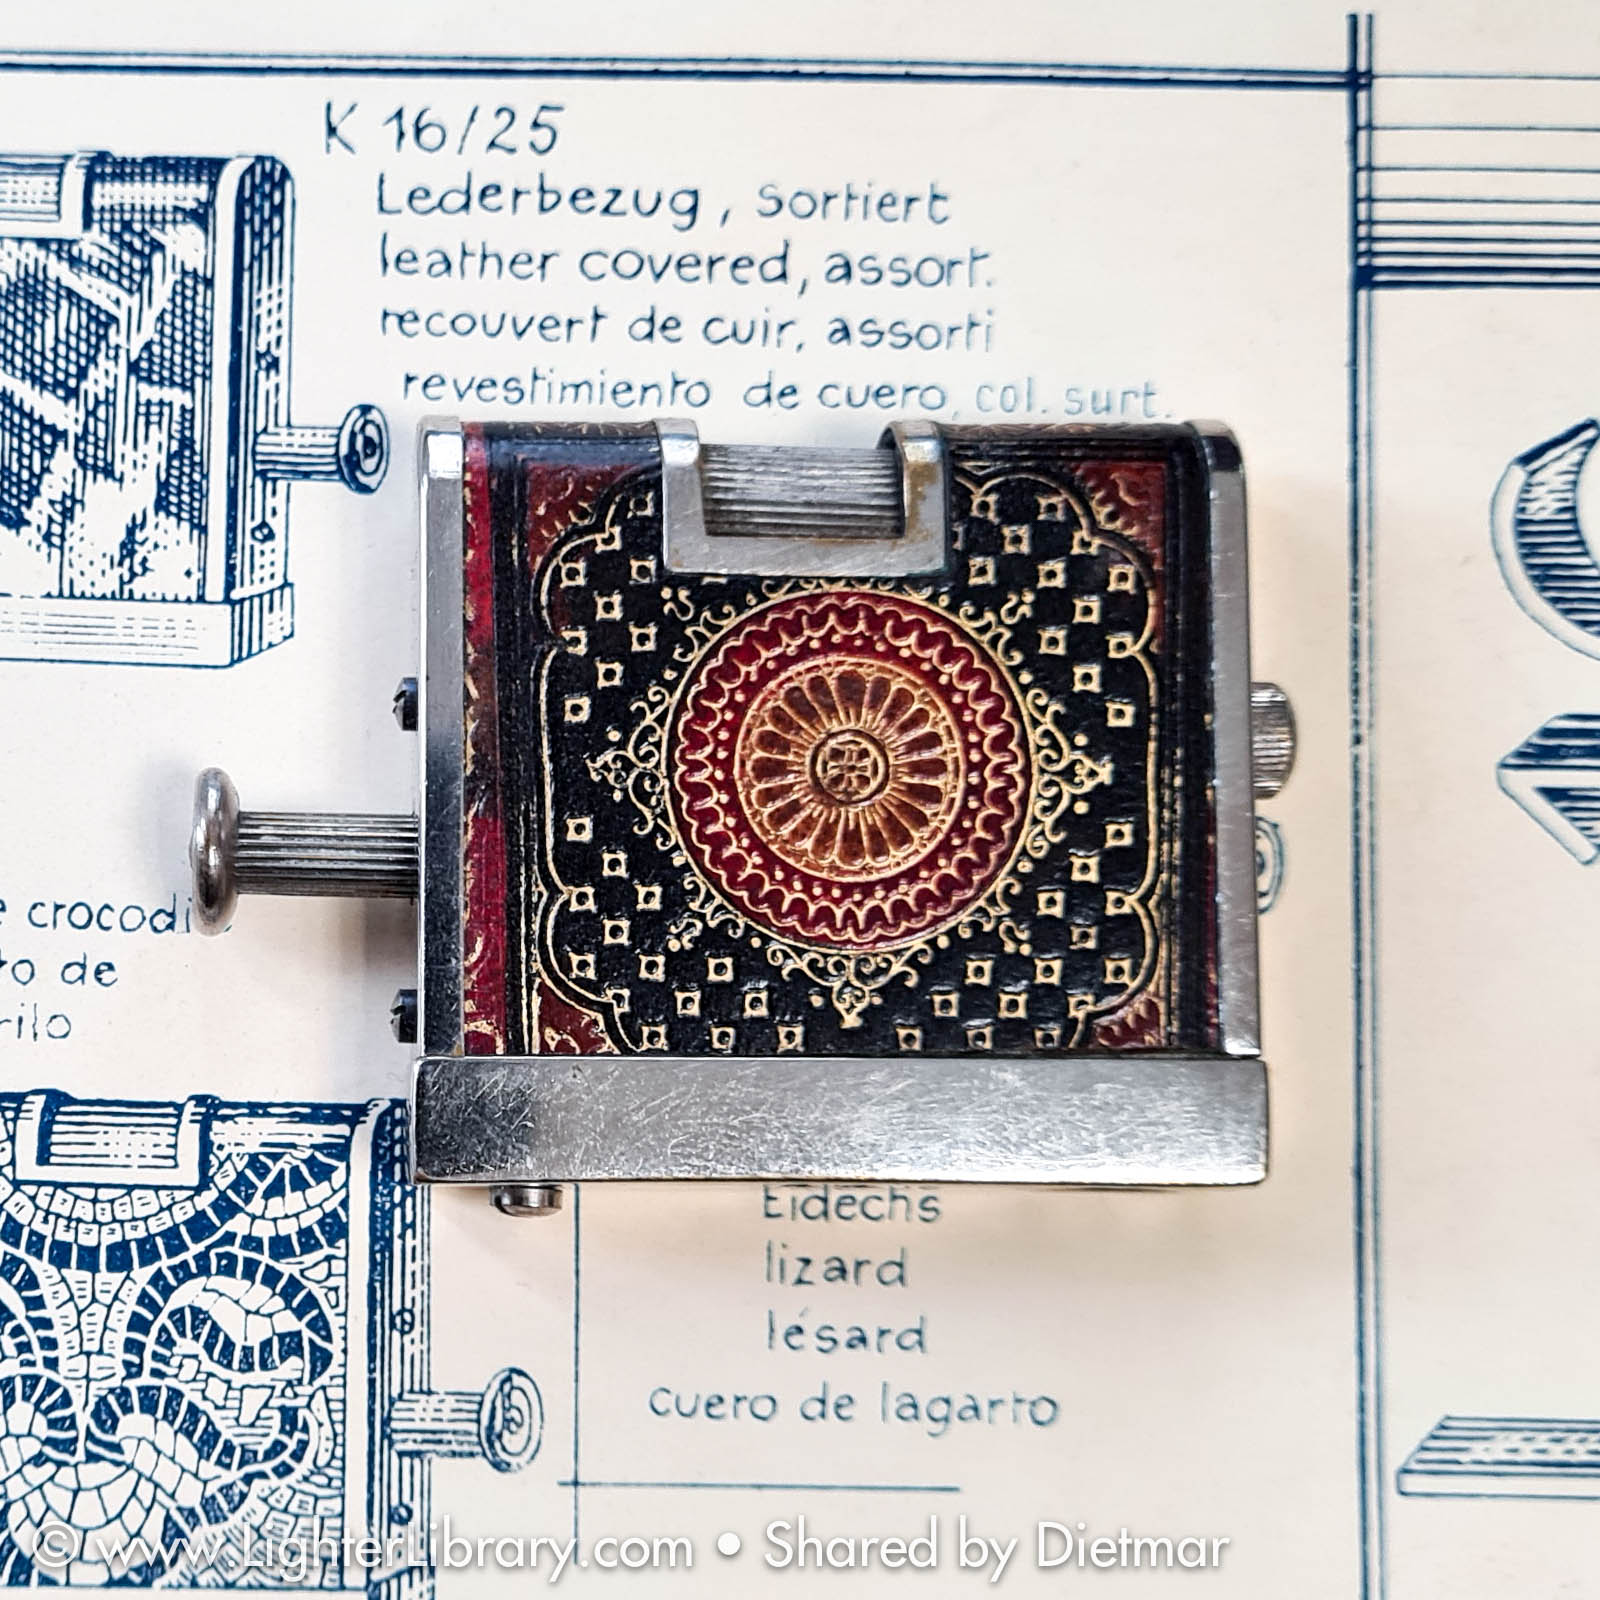 K 16/25
Lederbezug, sortiert
leather covered, assort.
recouvert de cuir, assorti
revestimiento de cuero, col. surt.
to de
Eidechs
lizard
lésard
cuero de lagarto
© www.LighterLibrary.com • Shared by Dietmar